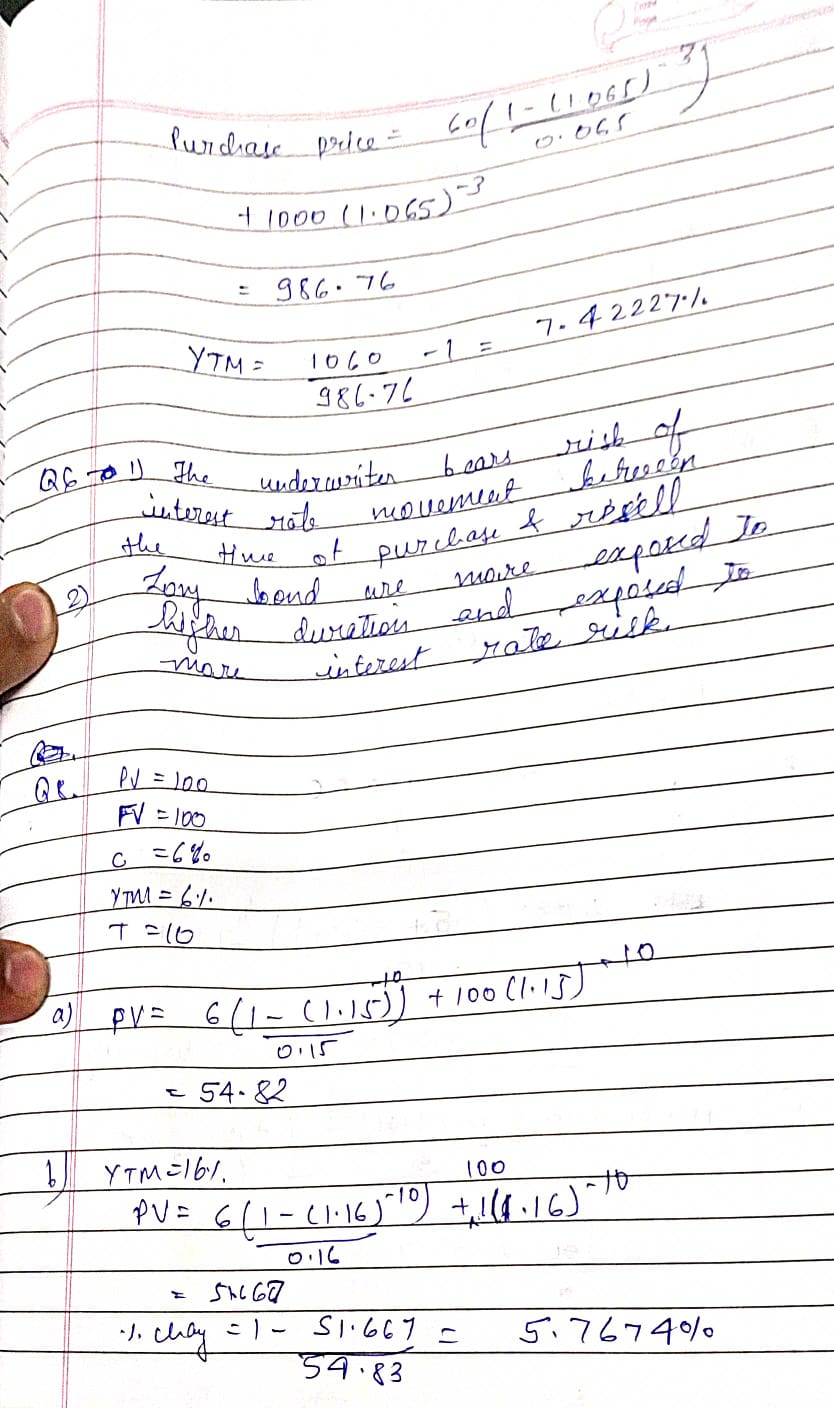 Purchase price = 60(1 - (1.065)^-3 / 0.065)
+ 1000 (1.065)^-3
= 986.76
YTM = 1060 / 986.76 - 1 = 7.42227%
Q6 → 1) The underwriter bears risk of
interest rate movement between
the time of purchase & resell
2) Long bond are more exposed to
higher duration and exposed to
more interest rate risk.
Q7.
Q8. PV = 100
FV = 100
C = 6%
YTM = 6%
T = 10
a) PV = 6(1 - (1.15)^-10 / 0.15) + 100 (1.15)^-10
= 54.82
b) YTM = 16%.
PV = 6(1 - (1.16)^-10 / 0.16) + 100 (1.16)^-10
= 51.667
%. chag = 1 - 51.667 / 54.83 = 5.7674%